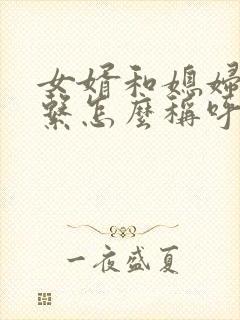 女婿和媳婦
繫怎麼稱呼
一夜盛夏